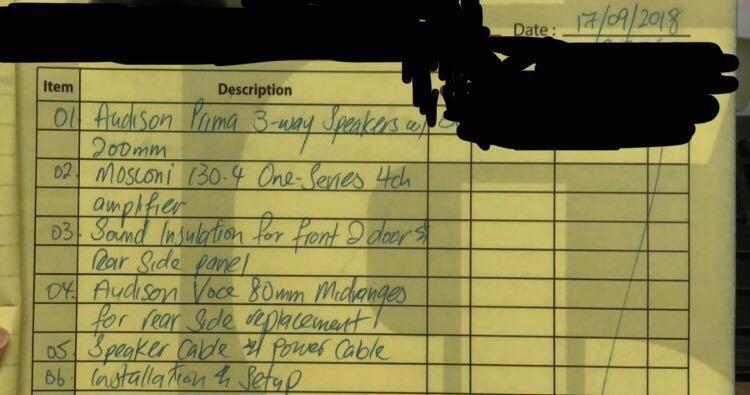 Date : 17/09/2018
Item Description
01. Audison Prima 3-way Speakers w/
200mm
02. Mosconi 130.4 One-Series 4ch
amplifier
03. Sound Insulation for front 2 door &
rear side panel
04. Audison Voce 80mm Midranges
for rear side replacement
05. Speaker Cable & Power Cable
06. Installation & Setup